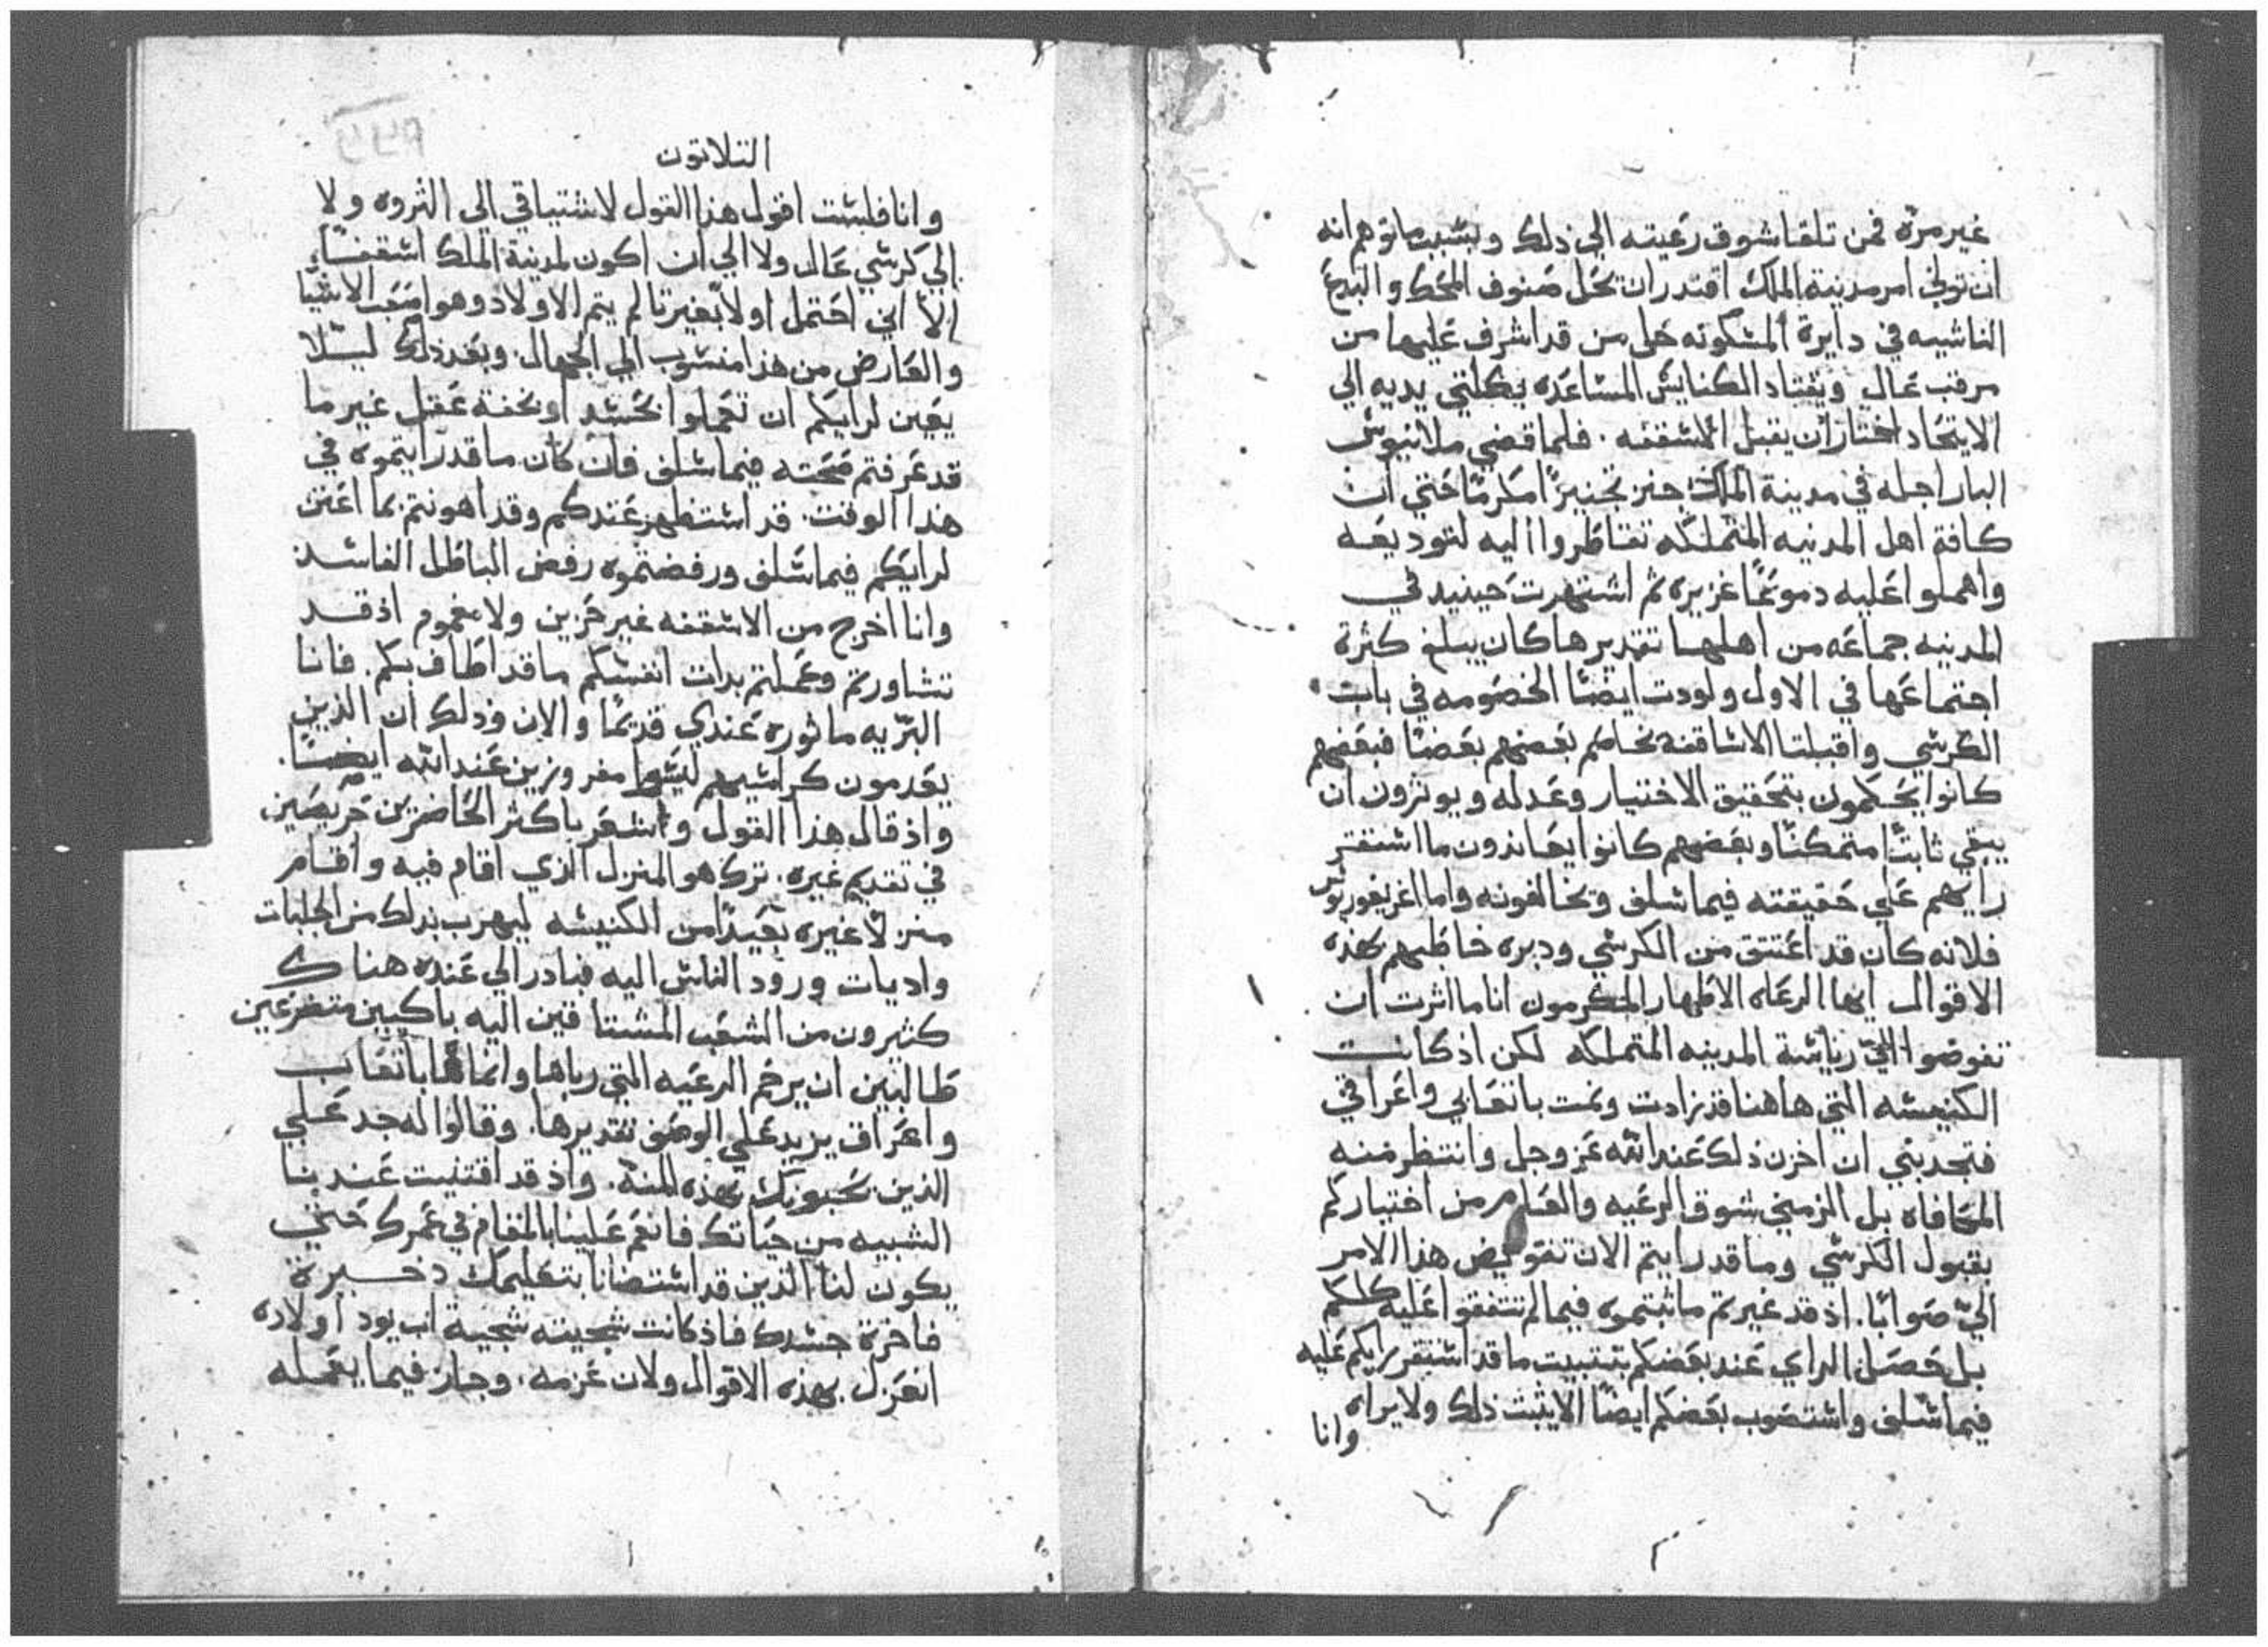 غير مره فمن تلقا شوق رعيته الي ذلك وبسبب ما توهم انه
ان تولي امر مدينة الملك اقتدر ان يحل صنوف المحك والبدع
الناشيه في دايرة المسكونه حل من قد اشرف عليها من
مرقب عال ويقتاد الكنايس المساعده بكلتي يديه الي
الايتحاد اختار ان يقبل الاسقفه. فلما قضي ملاتيوس
البار اجله في مدينة الملك جنز تجنيزًا مكرمًا حتي ان
كافة اهل المدنيه المتملكه تقاطروا اليه لتوديعه
واهملوا عليه دموعًا غزيره ثم اشتهرت حينيد في
المدنيه جماعه من اهلها تقديرها كان يبلغ كثرة
اجتماعها في الاول ولودت ايضًا الخصومه في بابت
الكرسي واقبلتا الاساقفه تحاكم بعضهم بعضًا فبعضهم
كانوا يحكمون بتحقيق الاختيار وعدله ويوثرون ان
يبقي ثابتًا متمكنًا وبعضهم كانوا يعاندون ما استقر
رايهم علي حقيقته فيما سلف وتخالفونه واما اغريغوريوس
فلانه كان قد اعتتق من الكرسي ودبره خاطبهم بهذه
الاقوال ايها الرعاه الاطهار المكرمون انا ما اثرت ان
تفوضوا اليّ رياسة المدينه المتملكه لكن اذ كانت
الكنيسه التي هاهنا قد زادت ونمت باتعابي واعراقي
فتجدبني ان اخزن ذلك عند الله عز وجل وانتظر منه
المكافاه بل الزمني شوق الرعيه والقيام من اختياركم
بقبول الكرسي وما قد رايتم الان تفويض هذا الامر
اليّ صوابًا. اذ قد غيرتم ما ثبتموه فيما لم تتفقوا عليه كلكم
بل حصل الراي عند بعضكم بتتبيت ما قد استقر رايكم عليه
فيما سلف واستصوب بعضكم ايضًا الا يثبت ذلك ولا يراه
وانا
التلاتون
وانا فلست اقول هذا القول لاشتياقي الي الثروه ولا
الي كرسي عال ولا الي ان اكون لمدينة الملك اسقفًا
الا اني احتمل اولا بغيرتا لم يتم الاولاد وهو اصعب الاشيا
والعارض من هذا منسوب الي الجهال وبعد ذلك ليلا
يعين لرايكم ان تعملوا بحسد او بخفة عقل غير ما
قد عرفتم صحته فيما سلف فان كان ما قد رايتموه في
هذا الوقت قد استظهر عندكم وقد اهونتم بما اعتن
لرايكم فيما سلف ورفضتموه رفض الباطل الفاسد
وانا اخرج من الاسقفه غير حزين ولا مغموم اذ قد
تشاورتم وعملتم بدات انفسكم ما قد اطاف بكم. فانا
البرّيه ماثوره عندي قديمًا والان وذلك ان الذين
يعدمون كراسيهم ليسوا مفروزين عند الله ايضًا.
واذ قال هذا القول واشعر باكثر الحاضرين حريصين
في تقديم غيره. ترك هو المنزل الذي اقام فيه واقام
منزلاً غيره بعيدًا من الكنيسه ليهرب بذلك من الجلبات
واديات ورود الناس اليه فبادر الي عنده هناك
كثيرون من الشعب المشتاقين اليه باكيين متضرعين
طالبين ان يرحم الرعيه التي رباها وانماها باتعاب
واعراق يزيد علي الوصف تقديرها. وقالوا له جد علي
الذين يحبونك بهذه المنة. واذ قد اقتنيت عندنا
الشبيه من حياتك فانعم علينا بالمقام في عمرك حتي
يكون لنا الذين قد استضانا بتعليمك دخيرة
فاخرة جسدك فاذ كانت سجيته سجية اب يود اولاده
انعزل بهذه الاقوال ولان عزمه. وجاز فيما يعمله